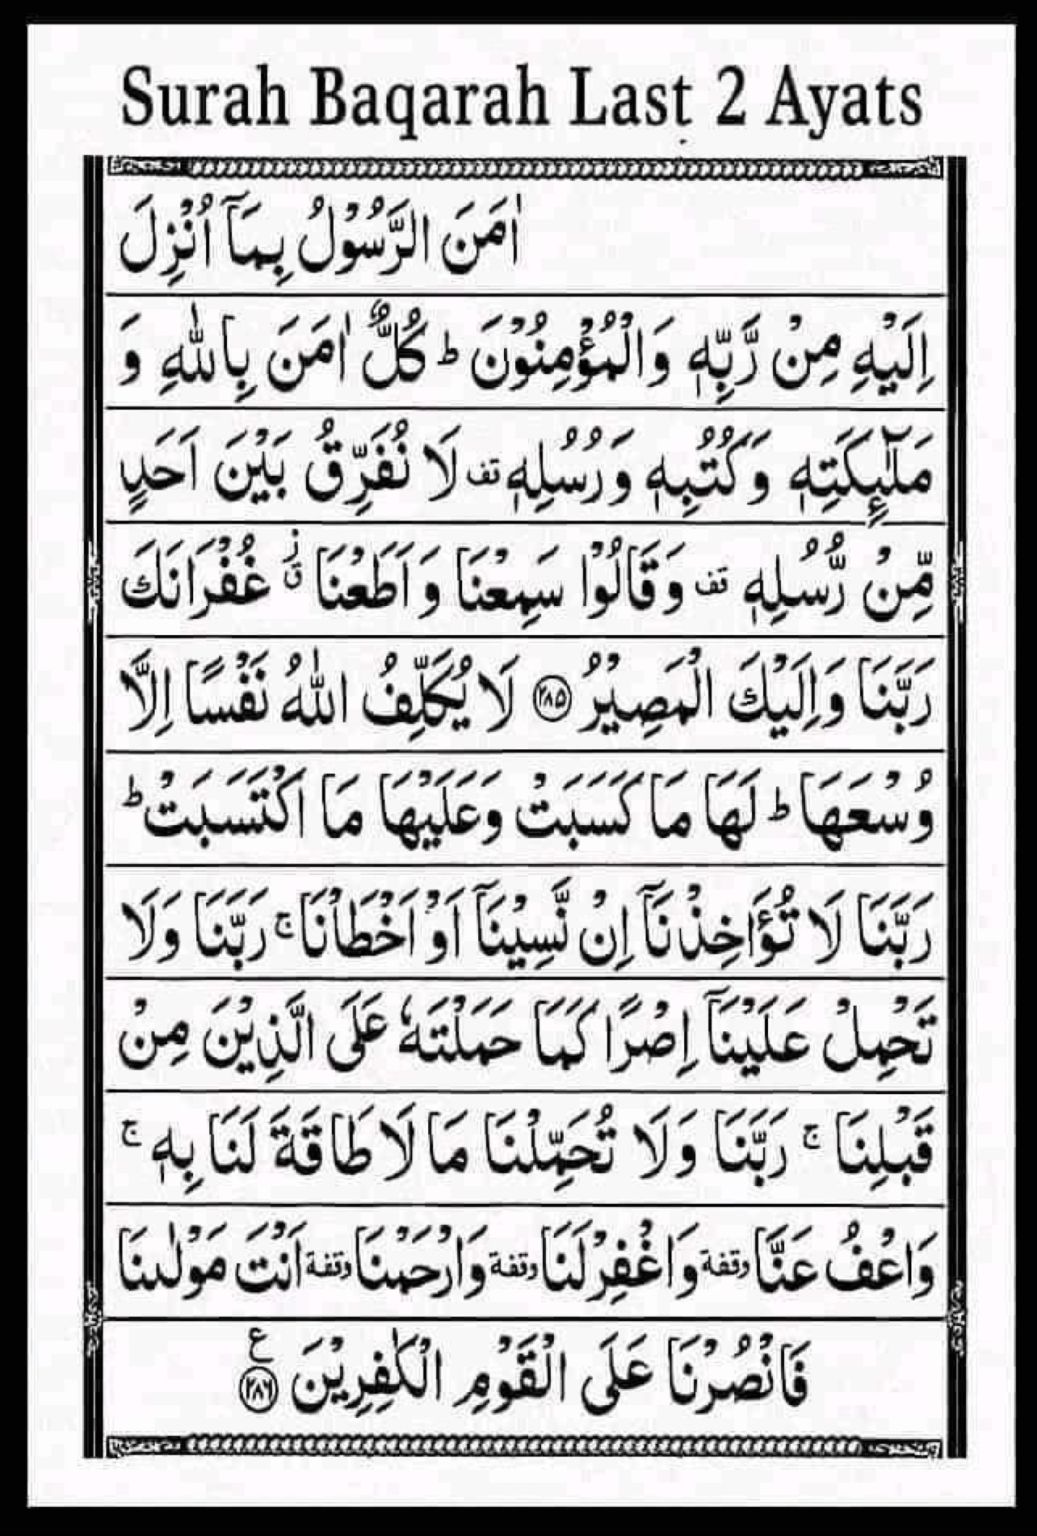 Surah Baqarah Last 2 Ayats
اٰمَنَ الرَّسُوْلُ بِمَآ اُنْزِلَ
اِلَيْهِ مِنْ رَّبِّهٖ وَالْمُؤْمِنُوْنَ ؕ كُلٌّ اٰمَنَ بِاللّٰهِ وَ
مَلٰٓئِكَتِهٖ وَكُتُبِهٖ وَرُسُلِهٖ قف لَا نُفَرِّقُ بَيْنَ اَحَدٍ
مِّنْ رُّسُلِهٖ قف وَقَالُوْا سَمِعْنَا وَاَطَعْنَا ق ز غُفْرَانَكَ
رَبَّنَا وَاِلَيْكَ الْمَصِيْرُ ﴿۲۸۵﴾ لَا يُكَلِّفُ اللّٰهُ نَفْسًا اِلَّا
وُسْعَهَا ؕ لَهَا مَا كَسَبَتْ وَعَلَيْهَا مَا اكْتَسَبَتْ ؕ
رَبَّنَا لَا تُؤَاخِذْنَآ اِنْ نَّسِيْنَآ اَوْ اَخْطَاْنَا ۚ رَبَّنَا وَلَا
تَحْمِلْ عَلَيْنَآ اِصْرًا كَمَا حَمَلْتَهٗ عَلَى الَّذِيْنَ مِنْ
قَبْلِنَا ۚ رَبَّنَا وَلَا تُحَمِّلْنَا مَا لَا طَاقَةَ لَنَا بِهٖ ۚ
وَاعْفُ عَنَّا وقفة وَاغْفِرْ لَنَا وقفة وَارْحَمْنَا وقفة اَنْتَ مَوْلٰىنَا
فَانْصُرْنَا عَلَى الْقَوْمِ الْكٰفِرِيْنَ ﴿۲۸۶﴾ ع